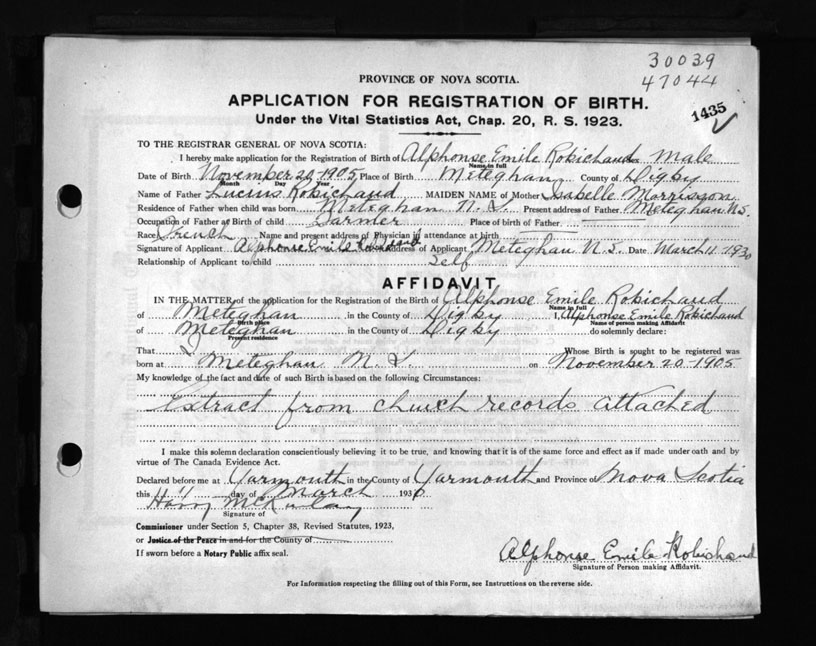 30039
47044
1435
PROVINCE OF NOVA SCOTIA.
APPLICATION FOR REGISTRATION OF BIRTH.
Under the Vital Statistics Act, Chap. 20, R. S. 1923.
TO THE REGISTRAR GENERAL OF NOVA SCOTIA:
I hereby make application for the Registration of Birth of Alphonse Emile Robichaud Male
Name in full
Date of Birth November 20 1905, Place of Birth Meteghan County of Digby
Month Day Year
Name of Father Lucius Robichaud MAIDEN NAME of Mother Isabelle Morrisson
Residence of Father when child was born Meteghan N.S. Present address of Father Meteghan N.S.
Occupation of Father at Birth of Child Farmer Place of birth of Father
Race French Name and present address of Physician in attendance at birth
Signature of Applicant Alphonse Emile Robichaud address of Applicant Meteghan N.S. Date March 11 1930
Relationship of Applicant to child Self
AFFIDAVIT
IN THE MATTER of the application for the Registration of the Birth of Alphonse Emile Robichaud
Name in full
of Meteghan in the County of Digby I, Alphonse Emile Robichaud
Birth place Name of person making Affidavit
of Meteghan in the County of Digby do solemnly declare:
Present residence
That I Whose Birth is sought to be registered was
born at Meteghan N.S. on November 20-1905
My knowledge of the fact and date of such Birth is based on the following Circumstances:
Extract from church records attached
I make this solemn declaration conscientiously believing it to be true, and knowing that it is of the same force and effect as if made under oath and by
virtue of The Canada Evidence Act.
Declared before me at Yarmouth in the County of Yarmouth and Province of Nova Scotia
this 11 day of March 1930
Harry McKinlay
Signature of
Commissioner under Section 5, Chapter 38, Revised Statutes, 1923,
or Justice of the Peace in and for the County of
If sworn before a Notary Public affix seal.
Alphonse Emile Robichaud
Signature of Person making Affidavit.
For Information respecting the filling out of this Form, see Instructions on the reverse side.